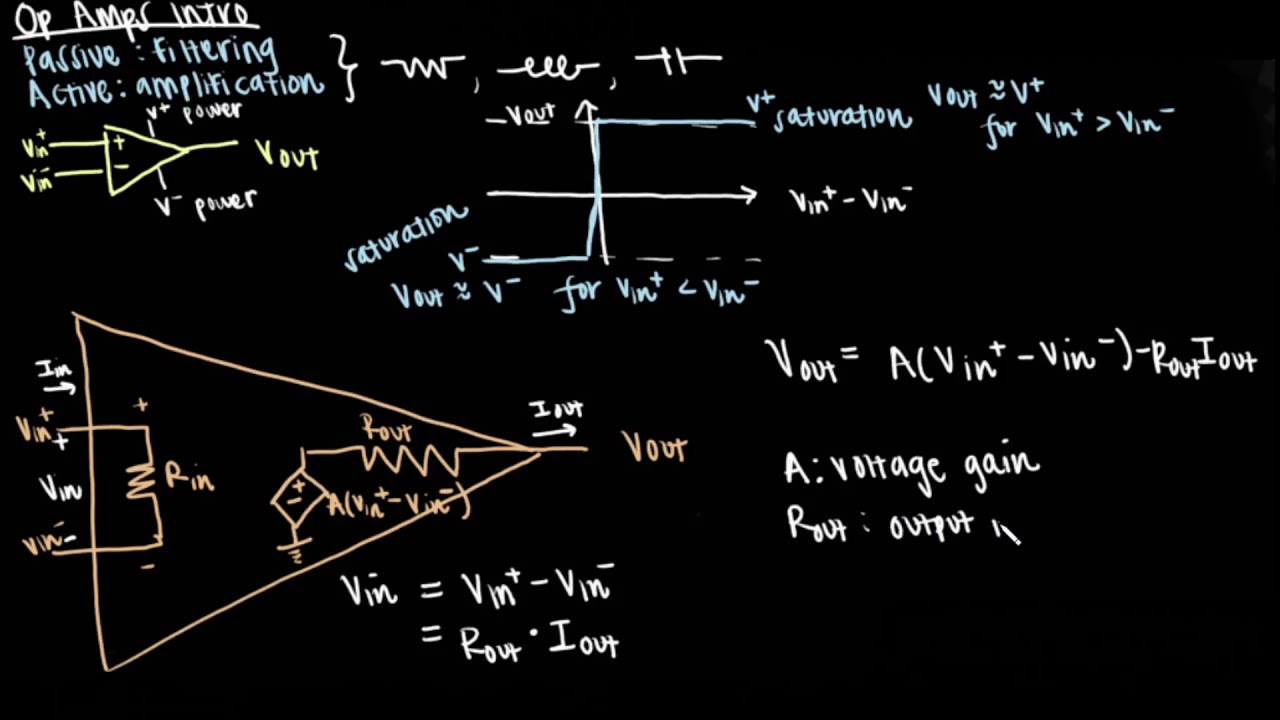 Op Amps Intro
Passive: filtering
Active: amplification
V⁺ power
Vin⁺
Vin⁻
+
-
Vout
V⁻ power
Vout
V⁺ saturation
Vout ≈ V⁺
for Vin⁺ > Vin⁻
Vin⁺ - Vin⁻
saturation
V⁻
Vout ≈ V⁻ for Vin⁺ < Vin⁻
Iin
Vin⁺
+
Vin
Vin⁻
-
+
Rin
-
Rout
+
-
A(Vin⁺ - Vin⁻)
Iout
Vout
Vin = Vin⁺ - Vin⁻
= Rout · Iout
Vout = A(Vin⁺ - Vin⁻) - Rout Iout
A: voltage gain
Rout: output